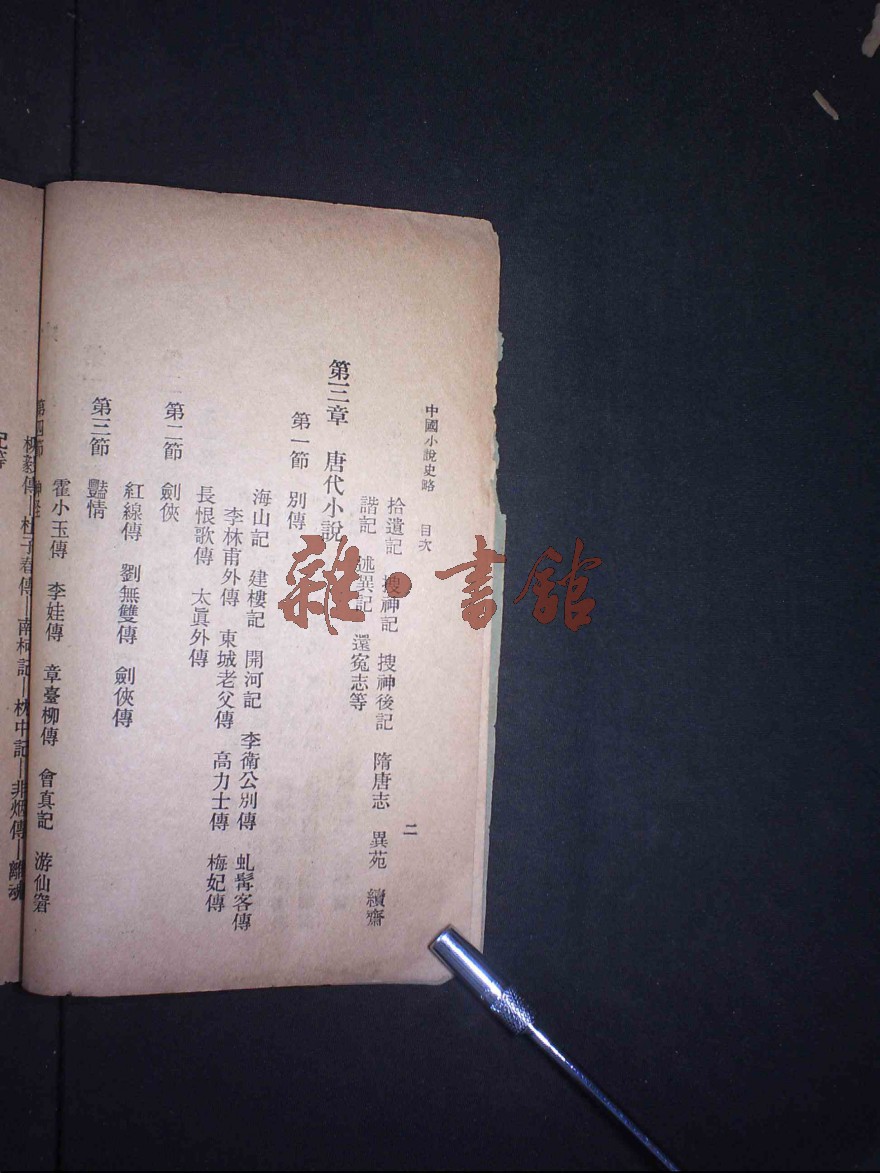 中國小說史略 目次 二
拾遺記 搜神記 搜神後記 隋唐志 異苑 續齋
諧記 述異記 還寃志等
第三章 唐代小說
第一節 別傳
海山記 建樓記 開河記 李衛公別傳 虬髯客傳
李林甫外傳 東城老父傳 高力士傳 梅妃傳
長恨歌傳 太眞外傳
第二節 劍俠
紅線傳 劉無雙傳 劍俠傳
第三節 豔情
霍小玉傳 李娃傳 章臺柳傳 會真記 游仙窟
第四節 神怪
柳毅傳—杜子春傳—南柯記—枕中記—非烟傳—離魂
記等
雜·書館